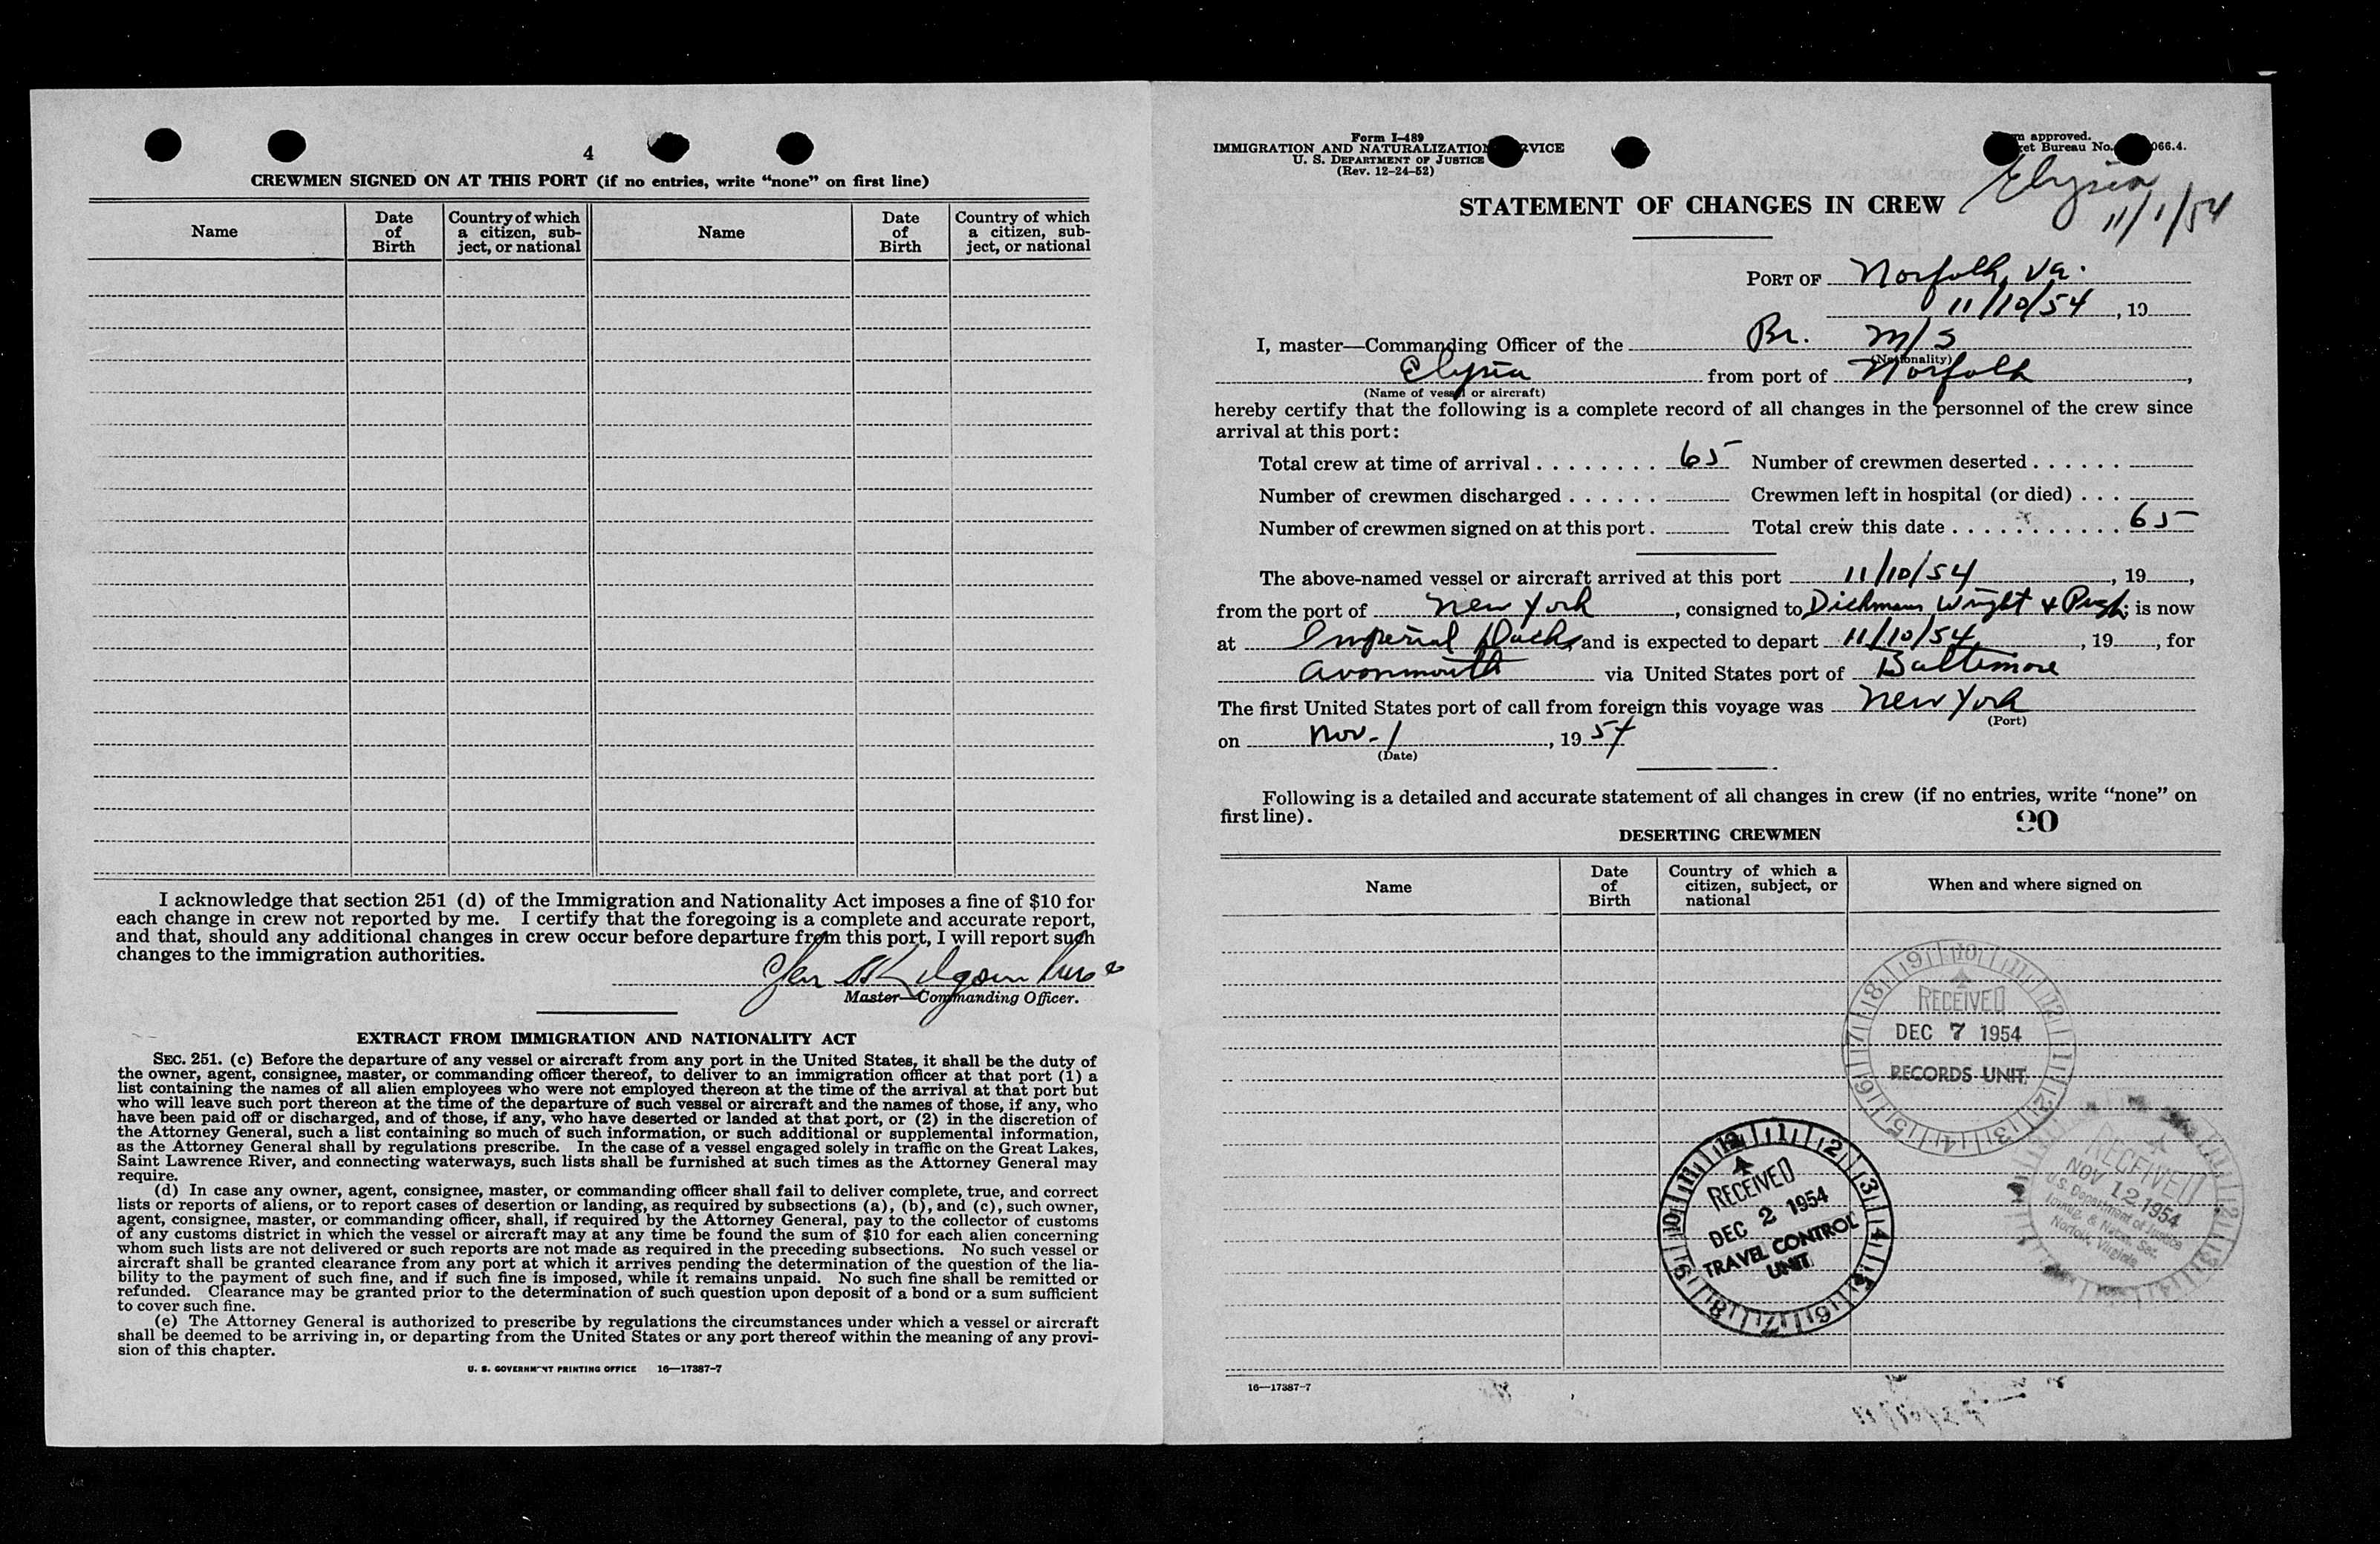 4
CREWMEN SIGNED ON AT THIS PORT (if no entries, write “none” on first line)
Name
Date of Birth
Country of which a citizen, subject, or national
Name
Date of Birth
Country of which a citizen, subject, or national
I acknowledge that section 251 (d) of the Immigration and Nationality Act imposes a fine of $10 for
each change in crew not reported by me. I certify that the foregoing is a complete and accurate report,
and that, should any additional changes in crew occur before departure from this port, I will report such
changes to the immigration authorities.
Master—Commanding Officer.
EXTRACT FROM IMMIGRATION AND NATIONALITY ACT
SEC. 251. (c) Before the departure of any vessel or aircraft from any port in the United States, it shall be the duty of
the owner, agent, consignee, master, or commanding officer thereof, to deliver to an immigration officer at that port (1) a
list containing the names of all alien employees who were not employed thereon at the time of the arrival at that port but
who will leave such port thereon at the time of the departure of such vessel or aircraft and the names of those, if any, who
have been paid off or discharged, and of those, if any, who have deserted or landed at that port, or (2) in the discretion of
the Attorney General, such a list containing so much of such information, or such additional or supplemental information,
as the Attorney General shall by regulations prescribe. In the case of a vessel engaged solely in traffic on the Great Lakes,
Saint Lawrence River, and connecting waterways, such lists shall be furnished at such times as the Attorney General may
require.
(d) In case any owner, agent, consignee, master, or commanding officer shall fail to deliver complete, true, and correct
lists or reports of aliens, or to report cases of desertion or landing, as required by subsections (a), (b), and (c), such owner,
agent, consignee, master, or commanding officer, shall, if required by the Attorney General, pay to the collector of customs
of any customs district in which the vessel or aircraft may at any time be found the sum of $10 for each alien concerning
whom such lists are not delivered or such reports are not made as required in the preceding subsections. No such vessel or
aircraft shall be granted clearance from any port at which it arrives pending the determination of the question of the lia-
bility to the payment of such fine, and if such fine is imposed, while it remains unpaid. No such fine shall be remitted or
refunded. Clearance may be granted prior to the determination of such question upon deposit of a bond or a sum sufficient
to cover such fine.
(e) The Attorney General is authorized to prescribe by regulations the circumstances under which a vessel or aircraft
shall be deemed to be arriving in, or departing from the United States or any port thereof within the meaning of any provi-
sion of this chapter.
U. S. GOVERNMENT PRINTING OFFICE 16—17387-7
Form I-489
IMMIGRATION AND NATURALIZATION SERVICE
U. S. DEPARTMENT OF JUSTICE
(Rev. 12-24-52)
approved.
Bureau No. 066.4.
Elysia
11/1/54
STATEMENT OF CHANGES IN CREW
PORT OF Norfolk, Va.
11/10/54, 19
I, master—Commanding Officer of the Br. M/S
(Nationality)
Elysia from port of Norfolk,
(Name of vessel or aircraft)
hereby certify that the following is a complete record of all changes in the personnel of the crew since
arrival at this port:
Total crew at time of arrival . . . . . . . . 65 Number of crewmen deserted . . . . . .
Number of crewmen discharged . . . . . . Crewmen left in hospital (or died) . . .
Number of crewmen signed on at this port . Total crew this date . . . . . . . . . . . 65
The above-named vessel or aircraft arrived at this port 11/10/54, 19,
from the port of New York, consigned to Dichmann Wright & Pugh; is now
at Imperial Docks, and is expected to depart 11/10/54, 19, for
Avonmouth via United States port of Baltimore
The first United States port of call from foreign this voyage was New York
(Port)
on Nov. 1, 1954
(Date)
Following is a detailed and accurate statement of all changes in crew (if no entries, write “none” on
first line).
90
DESERTING CREWMEN
Name
Date of Birth
Country of which a citizen, subject, or national
When and where signed on
RECEIVED
DEC 7 1954
RECORDS UNIT
RECEIVED
DEC 2 1954
TRAVEL CONTROL
UNIT
RECEIVED
NOV 12 1954
U.S. Department of Justice
Immig. & Natzn. Ser.
Norfolk, Virginia
16—17387-7